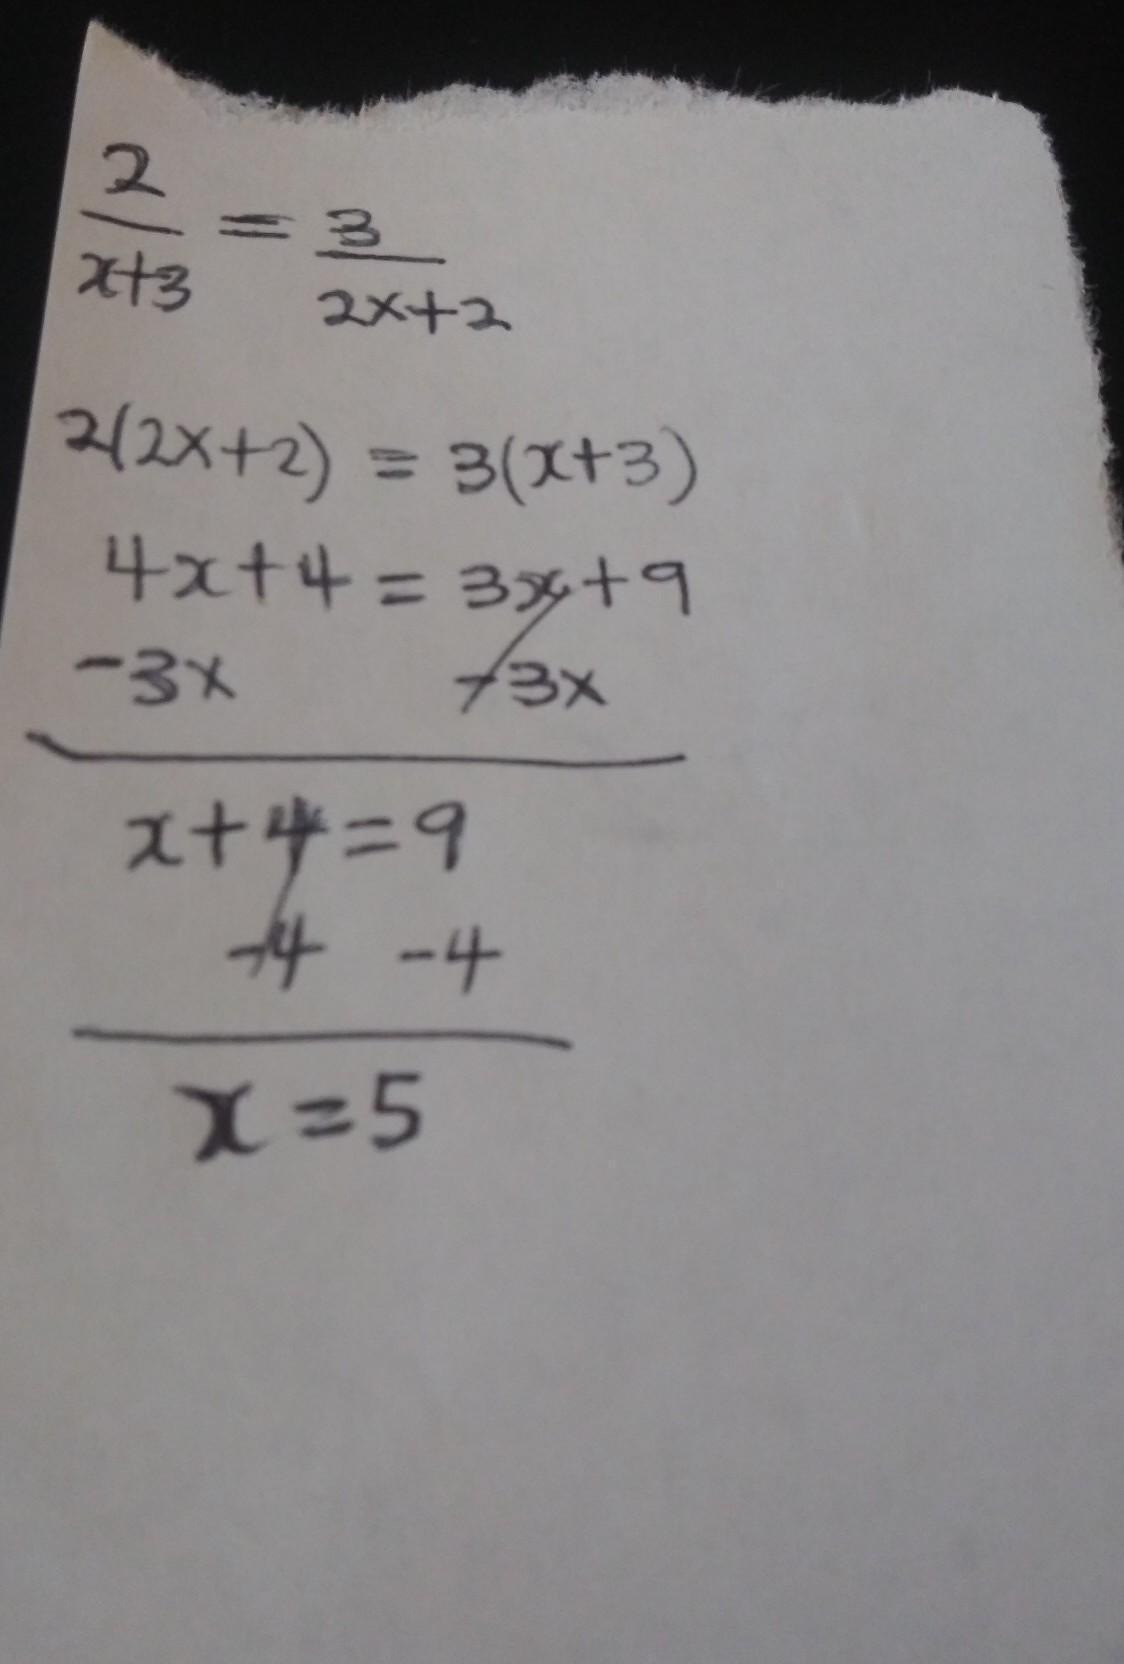 2/(x+3) = 3/(2x+2)
2(2x+2) = 3(x+3)
4x+4 = 3x+9
-3x -3x
x+4=9
-4 -4
x=5